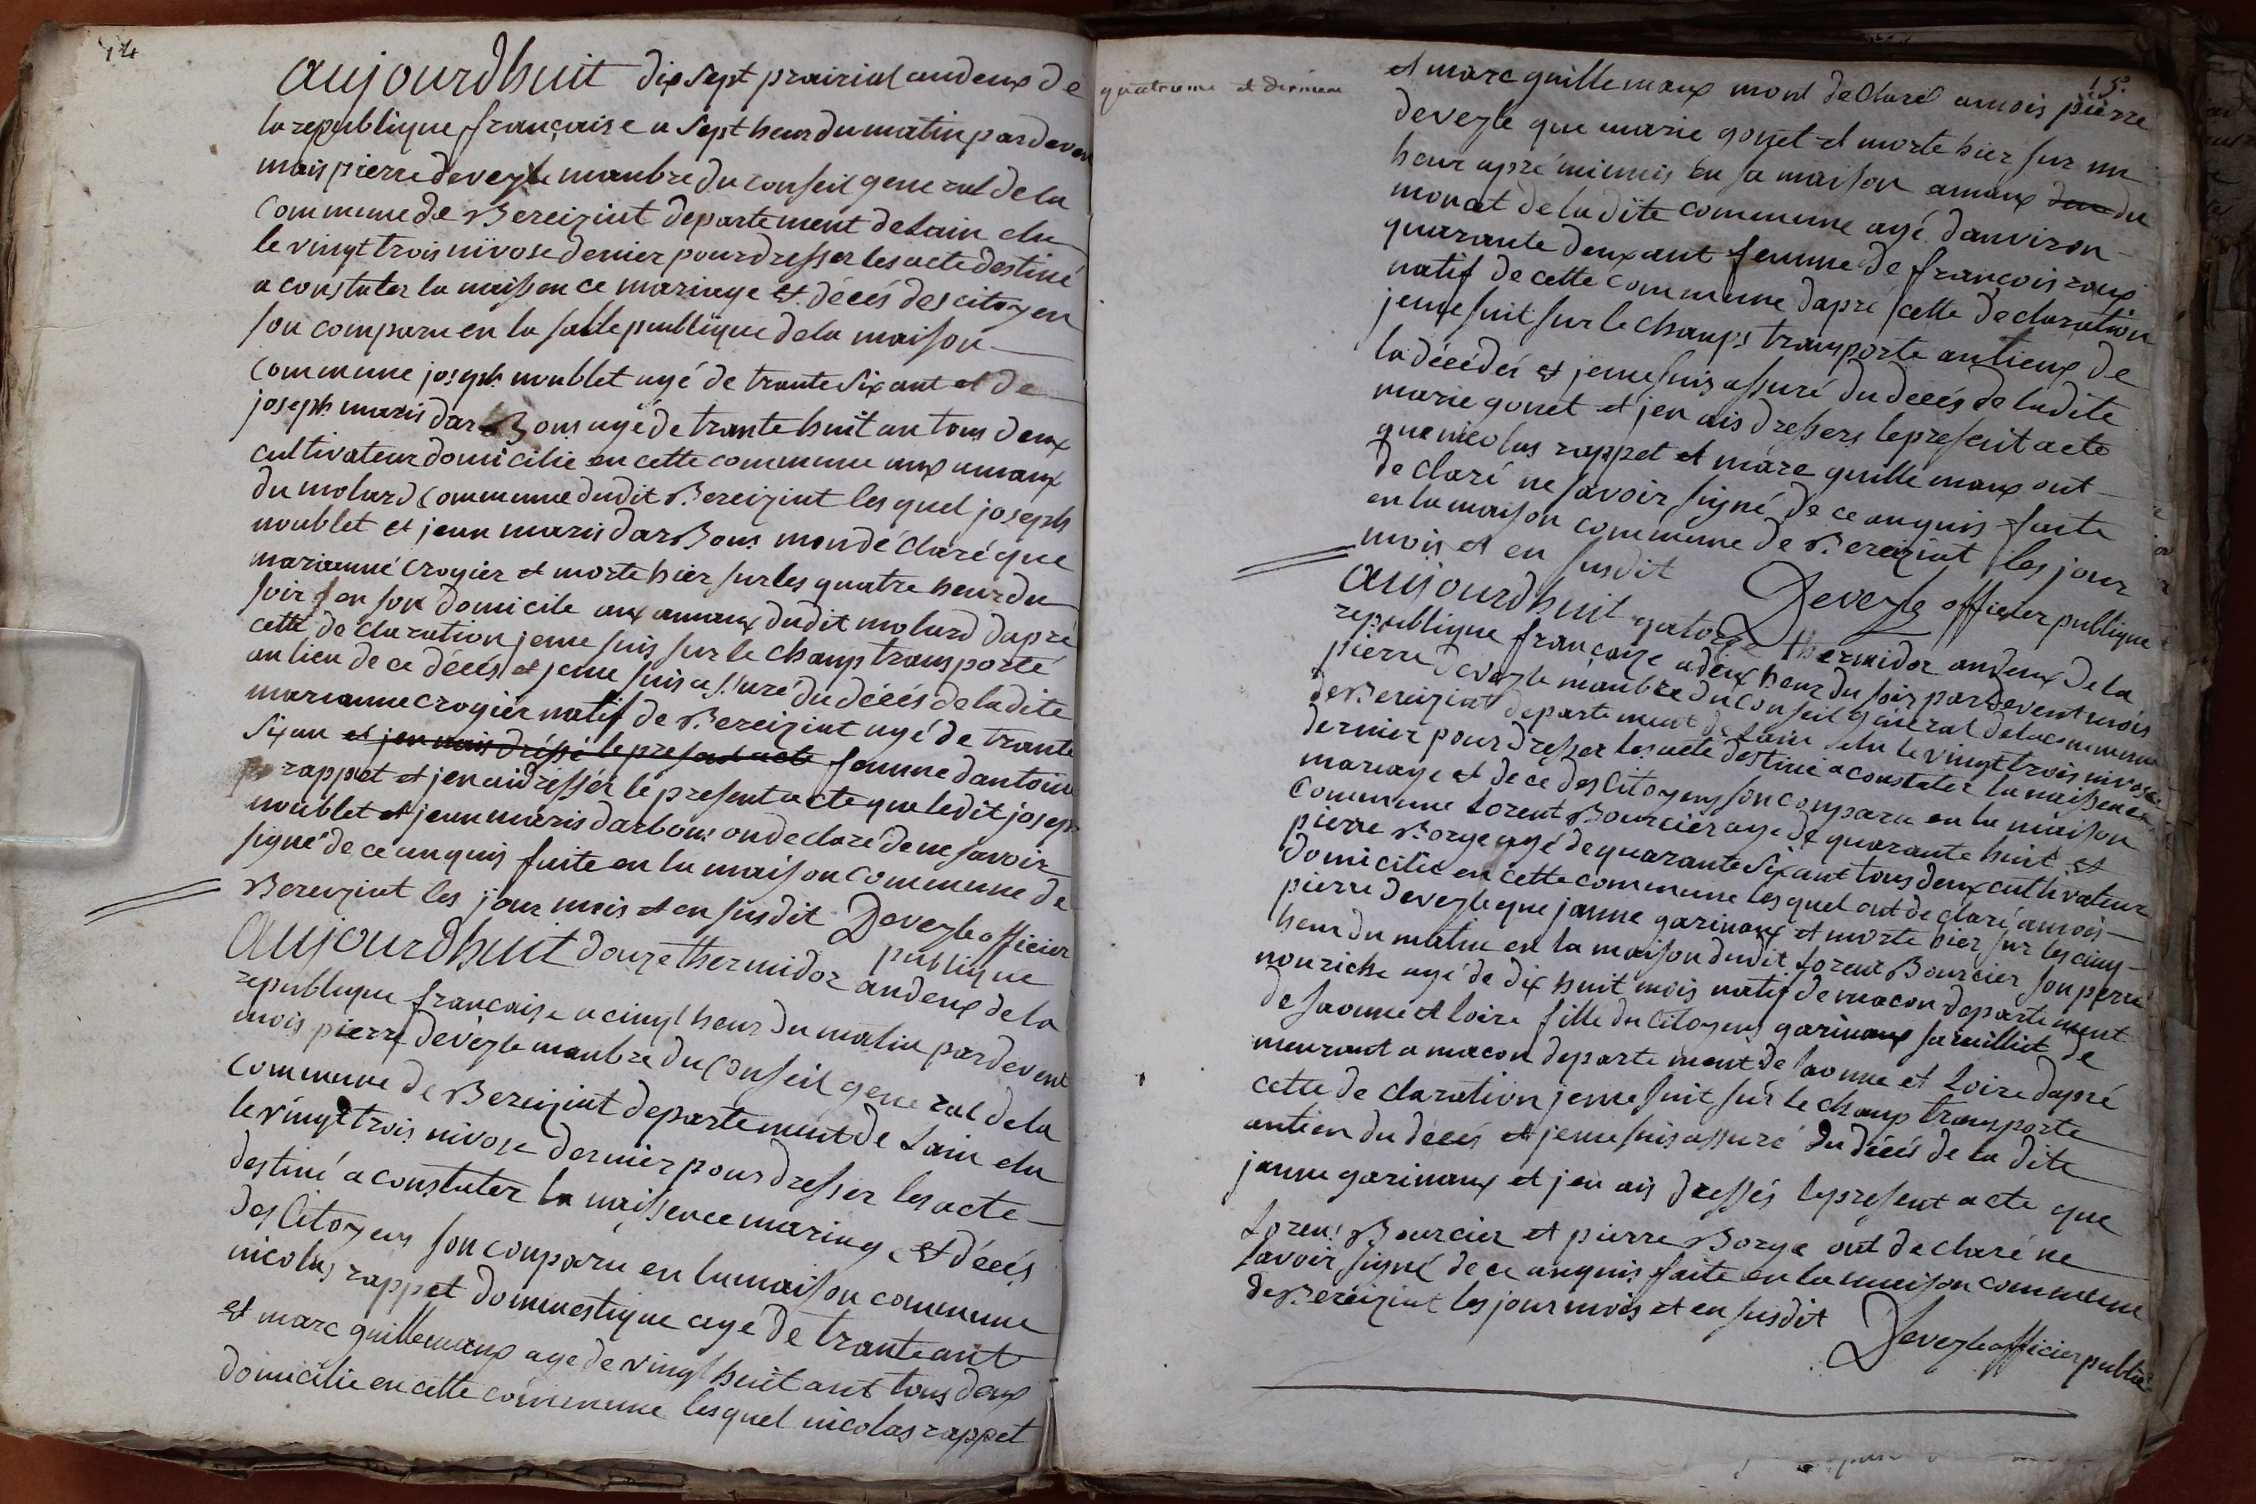 14
aujourdhuit dix sept prairial an deux de
la republique française a sept heur du matin par deven
mais pierre deveyle manbre du conseil general de la
commune de Bereiziat departement de Lain elu
le vingt trois nivose dernier pour dresser les acte destiné
a constater la naissence mariage et décés des citoyen
son comparu en la salle publique de la maison
commune joseph noublet agé de trante six ant et de
joseph maris darBons agé de trante huit an tous deux
cultivateur domicilié en cette commune aux amaux
du molard commune dudit Bereiziat les quel joseph
noublet et jean maris darBons mon déclaré que
marianne crogier et morte hier sur les quatre heur du
soir en son domicile aux amaux dudit molard dapré
cette declaration jeme suis sur le champ transporté
au lieu de ce décés et jeme suis assuré du décés de ladite
marianne crogier natif de Bereiziat agé de trante
six an et jen nais dréssé le present acte femme dantoine
rappet et jen ai dressér le present acte que ledit joseph
noublet et jean maris darbons on declaré de ne savoir
signé de ce anquis faite en la maison commune de
Bereiziat les jour mois et en susdit Deveyle officier
publique
aujourdhuit douze thermidor an deux de la
republique française a cinq heur du matin par devent
mois pierre deveyle manbre du conseil general de la
commune de Bereiziat departement de Lain elu
le vingt trois nivose dernier pour dresser les acte
destiné a constater la naissence mariage et décés
des Citoyens son conparu en la maison commune
nicolas rappet dommestique agé de trante ant
et marc guillemaux age de vingt huit ant tous deux
domicilié en cette commune les quel nicolas rappet
quatrieme et derniere
15
et marc guillemaux mont declaré amois pierre
deveyle que marie gonet et morte hier sur un
heur apré minuis en sa maison amaux du
monat de la dite commune agé danviron
quarante deux ant femme de françois roux
natif de cette commune dapré cette declaration
jeme suit sur le champs transporte au lieux de
la décédés et jeme suis assuré du décés de ladite
marie gonet et jen ais dressers le present acte
que nicolas rappet et marc guille maux ont
declaré ne savoir signé de ce anquis faite
en la maison commune de Bereiziat les jour
mois et en susdit Deveyle officier publique
aujourdhuit qatorze thermidor an deux de la
republique française a deux heur du soir par devent mois
pierre deveyle manbre du conseil general de la commune
de Bereiziat departement de Lain elu le vingt trois nivose
dernier pour dresser les acte destiné a constater la naissence
mariage et décé des Citoyens son comparu en la maison
commune Lorent Bourcier age de quarante huit et
pierre Borge agé de quarante six ant tous deux cultivateur
domicilié en cette commune les quel ont declaré amois
pierre deveyle que janne garinaux et morte hier sur les cinq
heur du matin en la maison dudit Lorent Bourcier son perre
nouriche agé de dix huit mois natif de macon departement
de saonne et loire fille du Citoyens garinaux
meurant a macon departement de saonne et Loire dapré
cette declaration jeme suit sur le champ transporte
au lieu du décés et jeme suis assuré du décés de la dite
janne garinaux et jen ais dressés le present acte que
Lorent Bourcier et pierre Borge ont declaré ne
savoir signé de ce anquis faite en la maison commune
de Bereiziat les jour mois et en susdit
Deveyle officier public